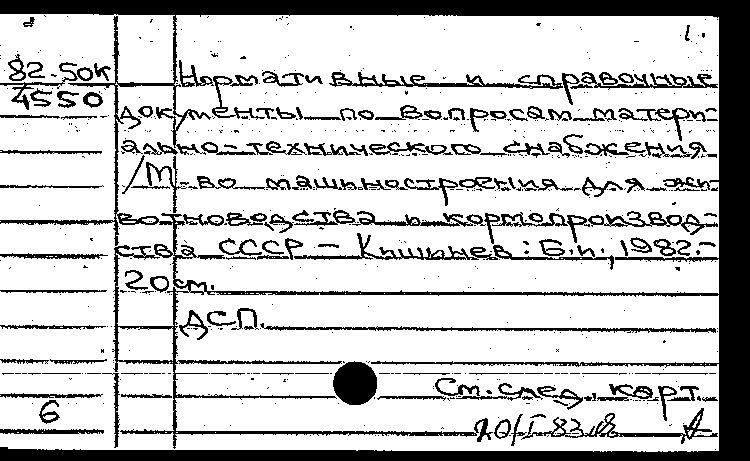 1.
82-50к Нормативные и справочные
4550 документы по вопросам матери-
ально-технического снабжения
/М-во машиностроения для жи-
вотноводства и кормопроизвод-
ства СССР – Кишинев: Б.и., 1982.-
20 см.
ДСП.
См. след. карт
6